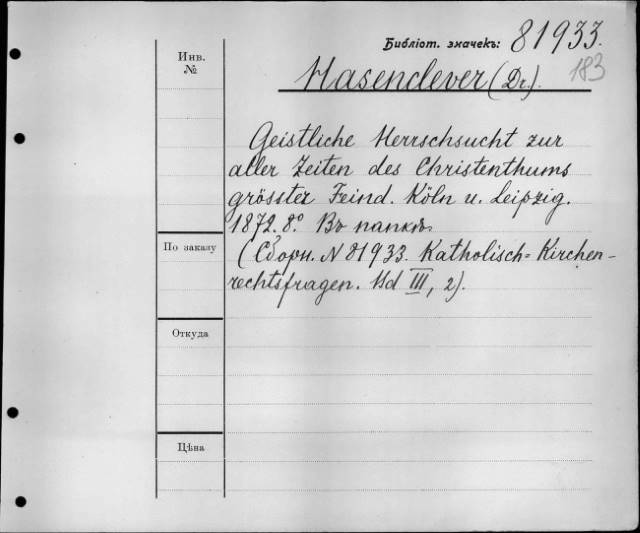 Библіот. значекъ: 81933.
183
Инв.
№
Hasenclever (Dr.).
Geistliche Herrschsucht zur
aller Zeiten des Christenthums
grösster Feind. Köln u. Leipzig.
1872. 8º. Въ папкѣ.
(Сборн. № 81933. Katholisch=Kirchen-
rechtsfragen. Bd III, 2).
По заказу
Откуда
Цѣна